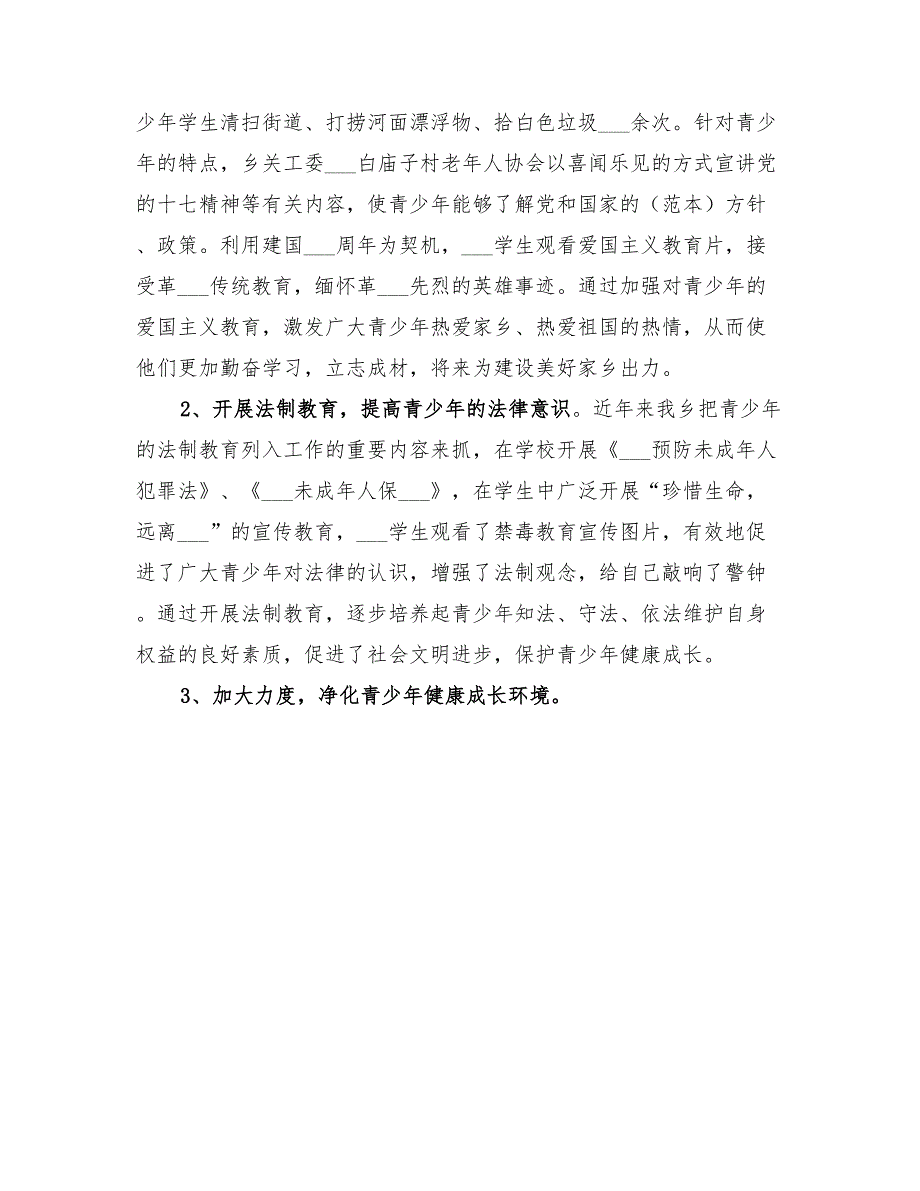 少年学生清扫街道、打捞河面漂浮物、拾白色垃圾___余次。针对青少
年的特点，乡关工委___白庙子村老年人协会以喜闻乐见的方式宣讲党
的十七精神等有关内容，使青少年能够了解党和国家的（范本）方针
、政策。利用建国___周年为契机，___学生观看爱国主义教育片，接
受革___传统教育，缅怀革___先烈的英雄事迹。通过加强对青少年的
爱国主义教育，激发广大青少年热爱家乡、热爱祖国的热情，从而使
他们更加勤奋学习，立志成材，将来为建设美好家乡出力。
2、开展法制教育，提高青少年的法律意识。近年来我乡把青少年
的法制教育列入工作的重要内容来抓，在学校开展《___预防未成年人
犯罪法》、《___未成年人保___》，在学生中广泛开展“珍惜生命，
远离___”的宣传教育，___学生观看了禁毒教育宣传图片，有效地促
进了广大青少年对法律的认识，增强了法制观念，给自己敲响了警钟
。通过开展法制教育，逐步培养起青少年知法、守法、依法维护自身
权益的良好素质，促进了社会文明进步，保护青少年健康成长。
3、加大力度，净化青少年健康成长环境。